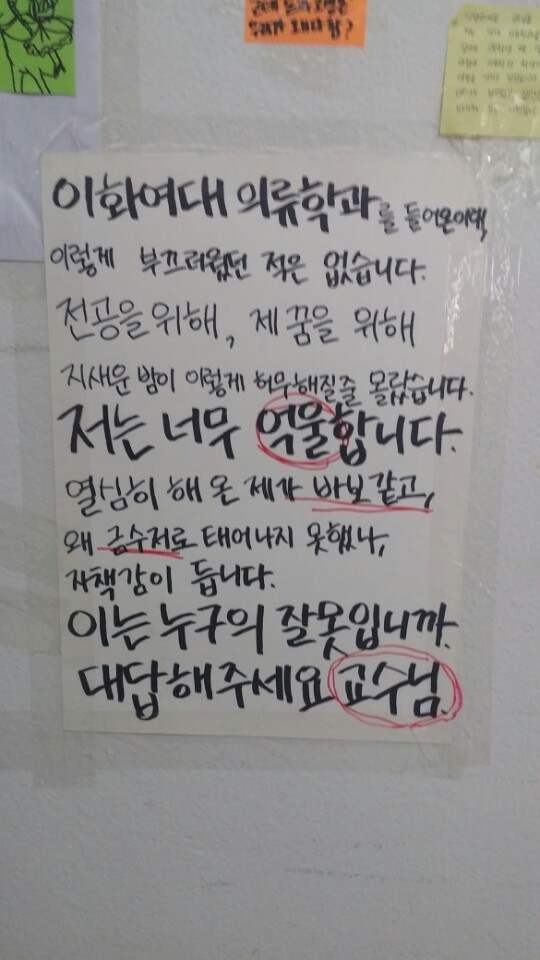 우리가 왜 내야 함?
이화여대 의류학과를 들어온이래,
이렇게 부끄러웠던 적은 없습니다.
전공을 위해, 제 꿈을 위해
지새운 밤이 이렇게 허무해질줄 몰랐습니다.
저는 너무 억울합니다.
열심히 해 온 제가 바보같고,
왜 금수저로 태어나지 못했나,
자책감이 듭니다.
이는 누구의 잘못입니까.
대답해주세요 교수님.